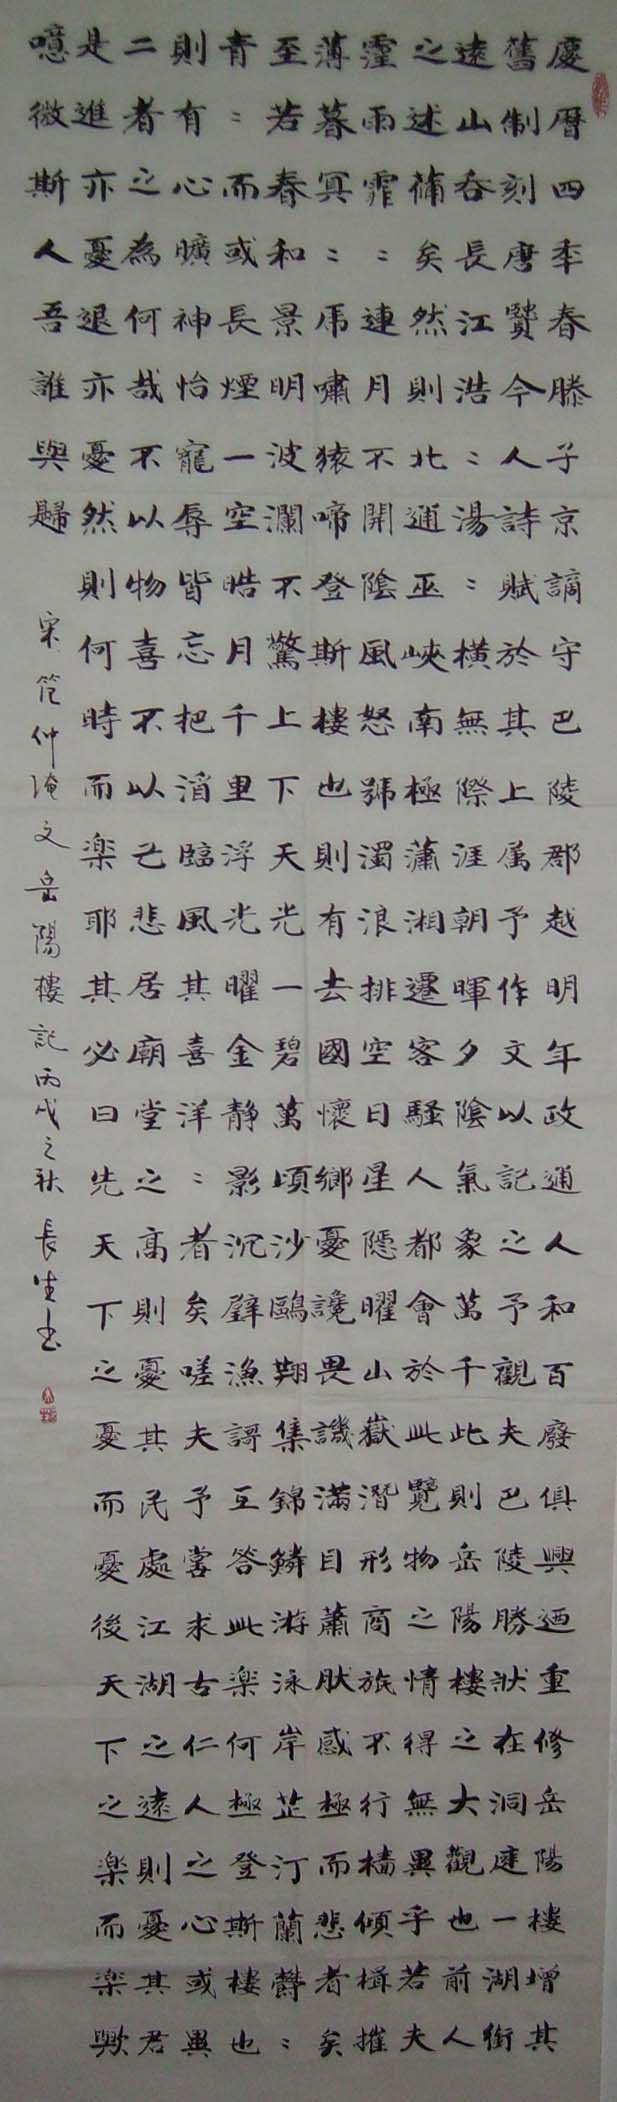 慶曆四年春滕子京謫守巴陵郡越明年政通人和百廢俱興迺重修岳陽樓增其
舊制刻唐賢今人詩賦於其上属予作文以記之予觀夫巴陵勝狀在洞庭一湖銜
遠山吞長江浩〻湯〻橫無際涯朝暉夕陰氣象萬千此則岳陽樓之大觀也前人
之述備矣然則北通巫峽南極瀟湘遷客騷人都會於此覽物之情得無異乎若夫
霪雨霏〻連月不開陰風怒號濁浪排空日星隱曜山嶽潛形商旅不行檣傾楫摧
薄暮冥〻虎嘯猿啼登斯樓也則有去國懷鄉憂讒畏譏滿目蕭肰感極而悲者矣
至若春和景明波瀾不驚上下天光一碧萬頃沙鷗翔集錦鱗游泳岸芷汀蘭鬱〻
青〻而或長煙一空皓月千里浮光曜金靜影沉璧漁謌互答此楽何極登斯樓也
則有心曠神怡寵辱皆忘把酒臨風其喜洋〻者矣嗟夫予嘗求古仁人之心或異
二者之為何哉不以物喜不以己悲居廟堂之高則憂其民處江湖之遠則憂其君
是進亦憂退亦憂然則何時而楽耶其必曰先天下之憂而憂後天下之楽而楽歟
噫微斯人吾誰與歸
宋范仲淹文岳陽樓記丙戌之秋長生书